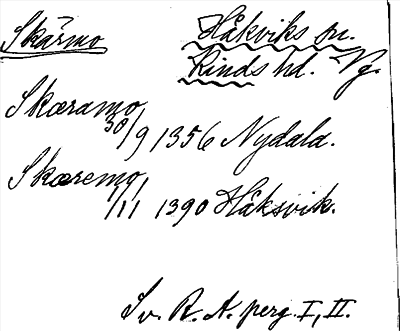 Skärmo Håkviks sn.
Kinds hd. Vg.
Skæramo
30/9 1356 Nydala.
Skæremo
1/11 1390 Håksvik.
Sv. R. A. perg. I, II.